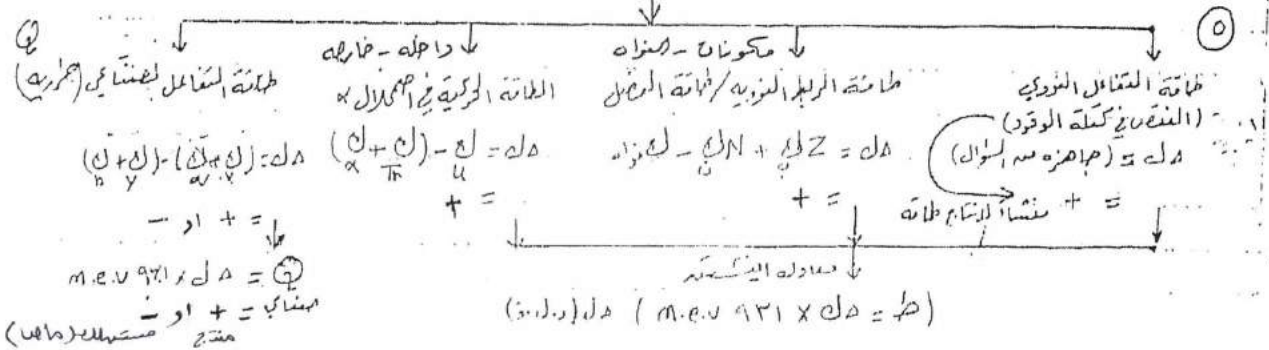 ٥
طاقة التفاعل النووي
(النقص في كتلة الوقود)
Δك = (جاهزه من السؤال)
= +
منشأ لانتاج طاقة
مكونات - النواه
طاقة الربط النوويه / طاقة الفصل
Δك = Z ك + N ك - ك نواه
= +
داخله - خارجه
الطاقة الحركية في اضمحلال α
Δك = ك - (ك + ك)
= +
Q
طاقة التفاعل الصناعي (حراريه)
Δك = (ك + ك) - (ك + ك)
= + او -
Q = Δك × ٩٣١ m.e.v
= + او -
منتج
معادله اينشتين
(ط = Δك × ٩٣١ m.e.v) Δك (و.ك.ذ)